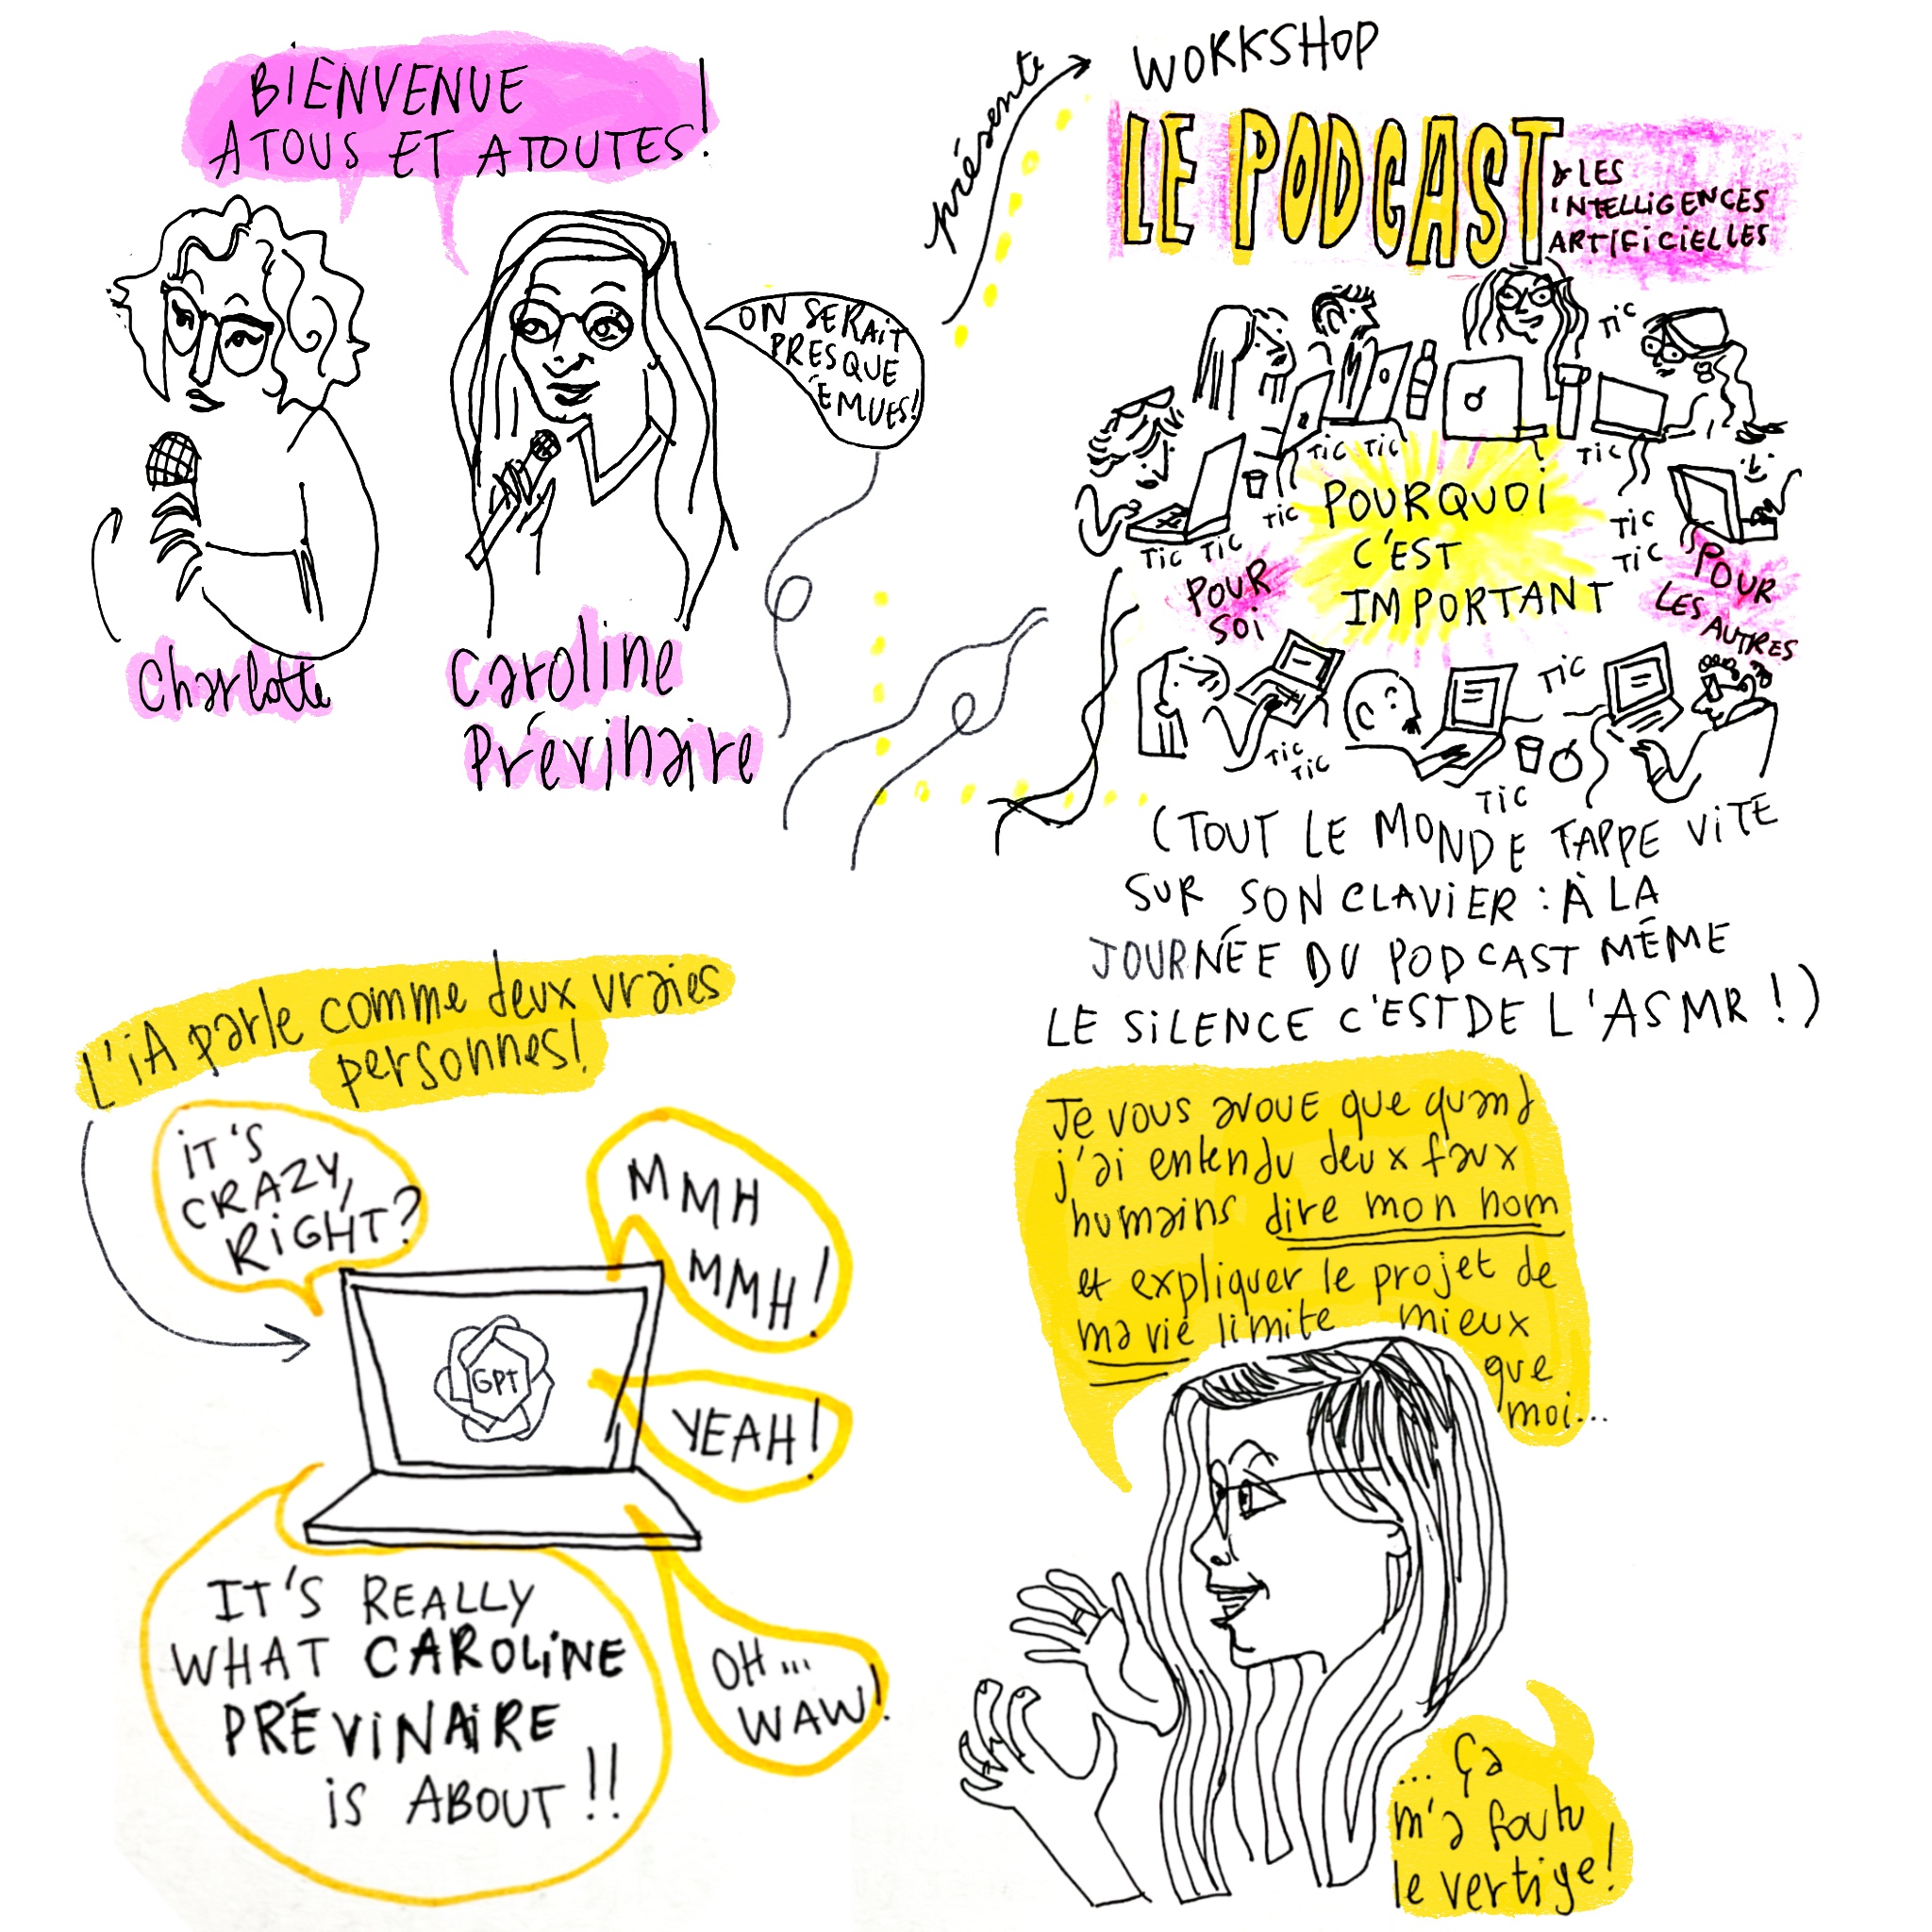 BIENVENUE
A TOUS ET A TOUTES!
ON SERAIT
PRESQUE
ÉMUES!
Charlotte
Caroline
Prévinaire
présente
WORKSHOP
LE PODCAST
& LES
INTELLIGENCES
ARTIFICIELLES
TIC
TIC TIC
TIC
TIC
TIC TIC
TIC
TIC
POURQUOI
C'EST
IMPORTANT
POUR
SOI
POUR
LES AUTRES
TIC
TIC
TIC
TIC
(TOUT LE MONDE TAPPE VITE
SUR SON CLAVIER : À LA
JOURNÉE DU PODCAST MÊME
LE SILENCE C'EST DE L'ASMR !)
L'iA parle comme deux vraies
personnes!
IT'S
CRAZY,
RIGHT?
MMH
MMH!
GPT
YEAH!
IT'S REALLY
WHAT CAROLINE
PRÉVINAIRE
IS ABOUT!!
OH...
WAW!
Je vous avoue que quand
j'ai entendu deux faux
humains dire mon nom
et expliquer le projet de
ma vie limite mieux
que
moi...
... ça
m'a foutu
le vertige!